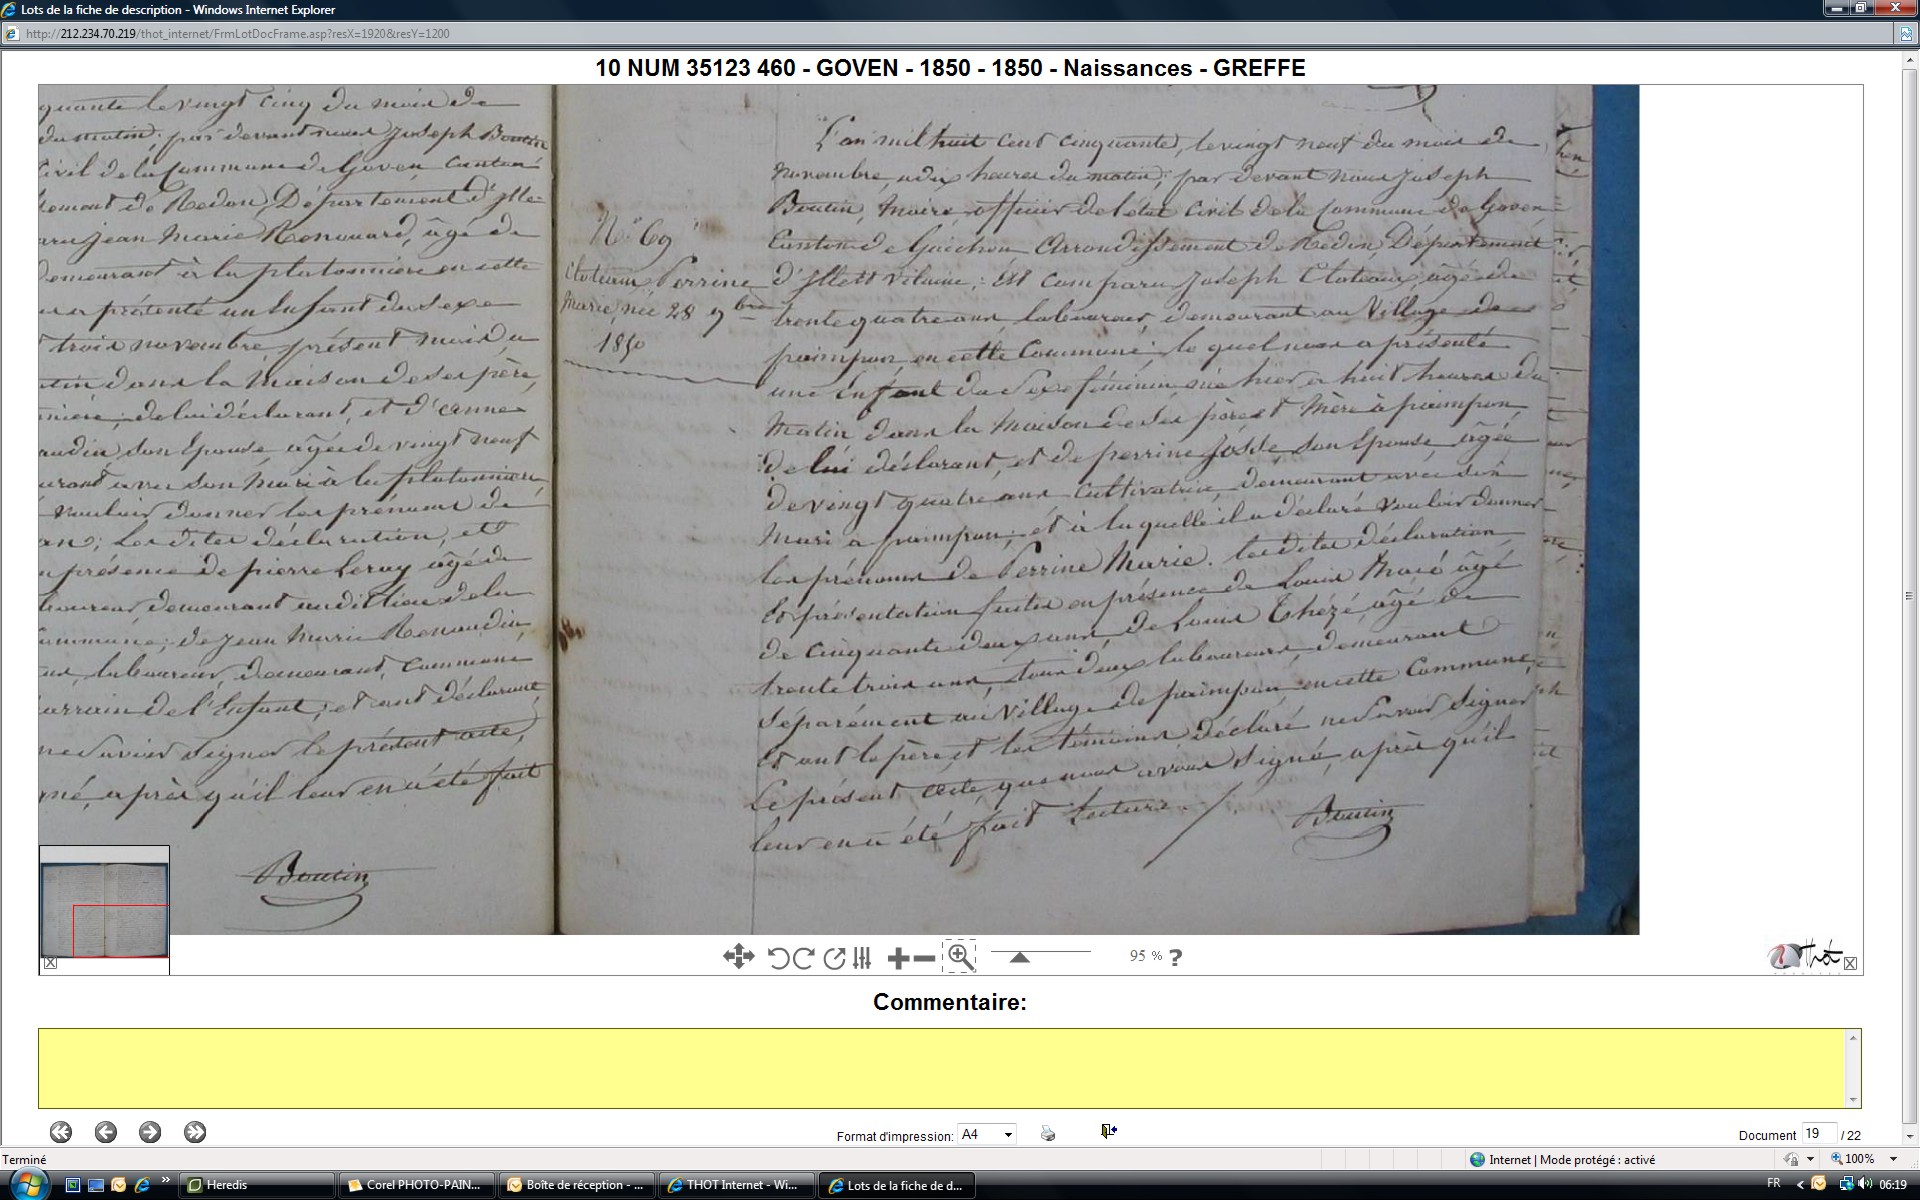 Lots de la fiche de description - Windows Internet Explorer
http://212.234.70.219/thot_internet/FrmLotDocFrame.asp?resX=1920&resY=1200
10 NUM 35123 460 - GOVEN - 1850 - 1850 - Naissances - GREFFE
quante le vingt cinq du mois de
du matin, par devant nous Joseph Boutin
Civil de la Commune de Goven Canton
ement de Redon, Département d'Ille
Jean Marie Renouard, âgé de
demeurant à la plutonnière en cette
a présenté un Enfant du sexe
trois novembre, présent mois à
dans la Maison de ses père
de lui déclarant, et d'anne
son Epouse âgée de vingt neuf
avec son Mari à la plutonnière
vouloir donner les prénoms de
Les dites déclaration, et
présence de pierre Leray âgé de
laboureur demeurant au dit lieu de la
commune; de Jean Marie Renaudin
laboureur, demeurant, Commune
parrain de l'Enfant; et ont déclarant
ne savoir signer le présent acte,
gné, après qu'il leur en a été fait
Boutin
N° 69
Cloteaux Perrine
Marie, née 28 9bre
1850
L'an mil huit cent cinquante, le vingt neuf du mois de
novembre, a dix heures du matin; par devant nous Joseph
Boutin, Maire, officier de l'état Civil de la Commune de Goven
Canton de Guichen Arrondissement de Redon, Département
d'Ille et Vilaine; Est Comparu Joseph Cloteaux, âgé de
trente quatre ans, laboureur, demeurant au Village de
paimpon, en cette Commune; le quel nous a présenté
une Enfant du Sexe féminin, née hier à huit heures du
Matin dans la Maison de ses père et Mère à paimpon
de lui déclarant, et de perrine Josse son Epouse âgée
de vingt quatre ans Cultivatrice, demeurant avec son
Mari a paimpon; et à la quelle il a déclaré vouloir donner
les prénoms de Perrine Marie. les dites déclaration
Et présentation faites en présence de Louis Macé âgé
de Cinquante deux ans, de Louis Thézé, âgé de
trente trois ans, tous deux laboureurs, demeurant
séparément au Village de paimpon, en cette Commune,
Et ont le père et les témoins déclaré ne savoir signer
Le présent acte, que nous avons Signé, après qu'il
leur en a été fait Lecture.
Boutin
95 % ?
Thot
Commentaire:
Format d'impression: A4
Document 19 / 22
Terminé
Internet | Mode protégé : activé
100%
Heredis
Corel PHOTO-PAIN...
Boîte de réception - ...
THOT Internet - Wi...
Lots de la fiche de d...
FR
06:19